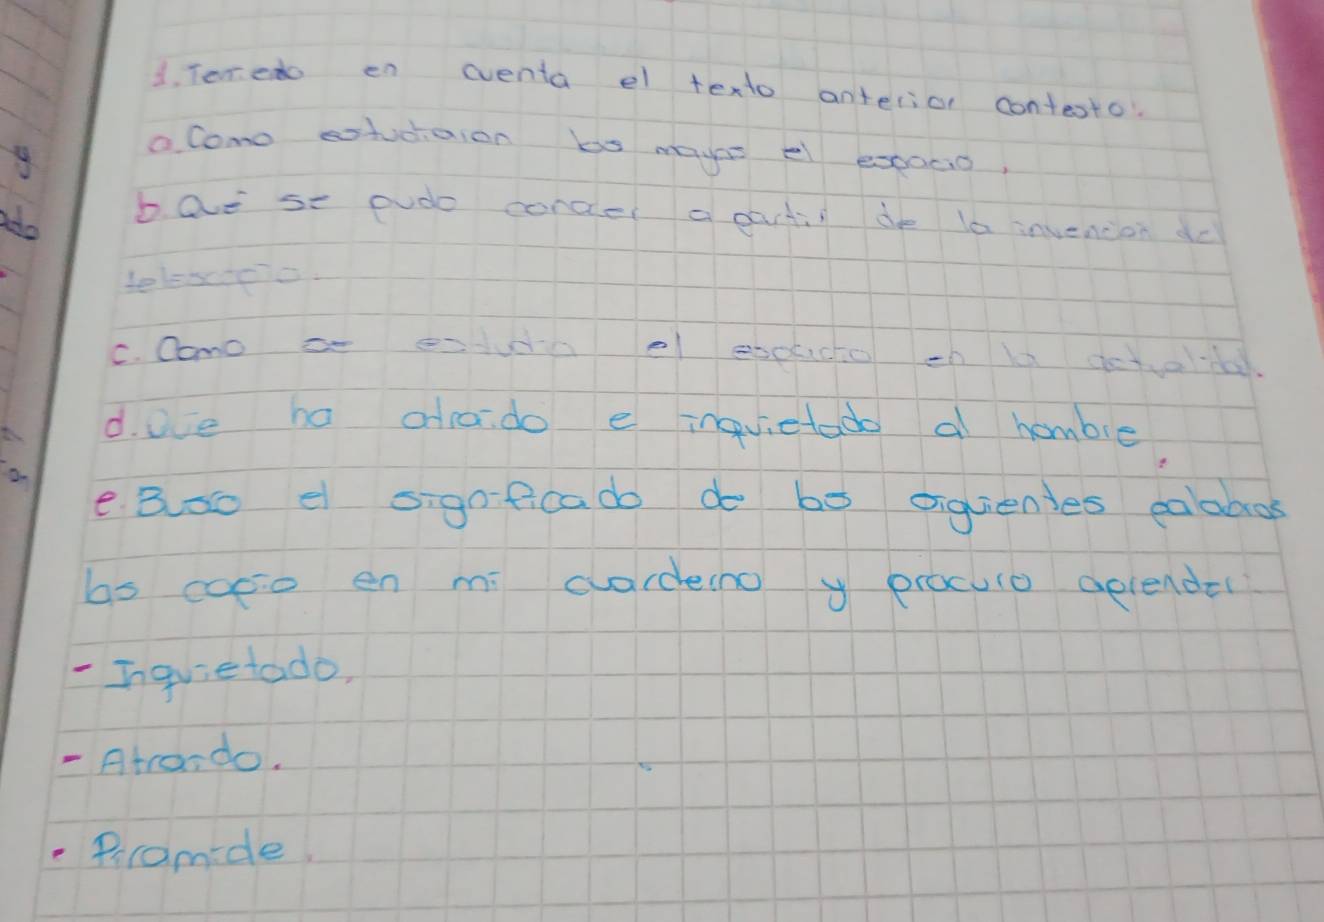 1. Teniedo en cuenta el texto anterior contesto:
a. Como estudiaron los mayas el espacio,
b. Qué se pudo conocer a partir de la invencion del
telescopio.
c. Como se estudia el espacio en la actualidad.
d. Que ha atraido e inquietado al hombre
e. Busco el significado de los siguientes palabras
los copio en mi cuarderno y procuro aprender:
- Inquietado,
- Atraido.
- Piramide
y
ado